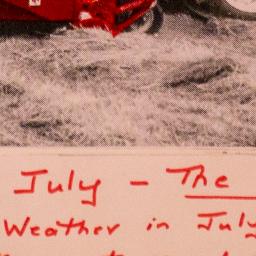 July - The
Weather in July